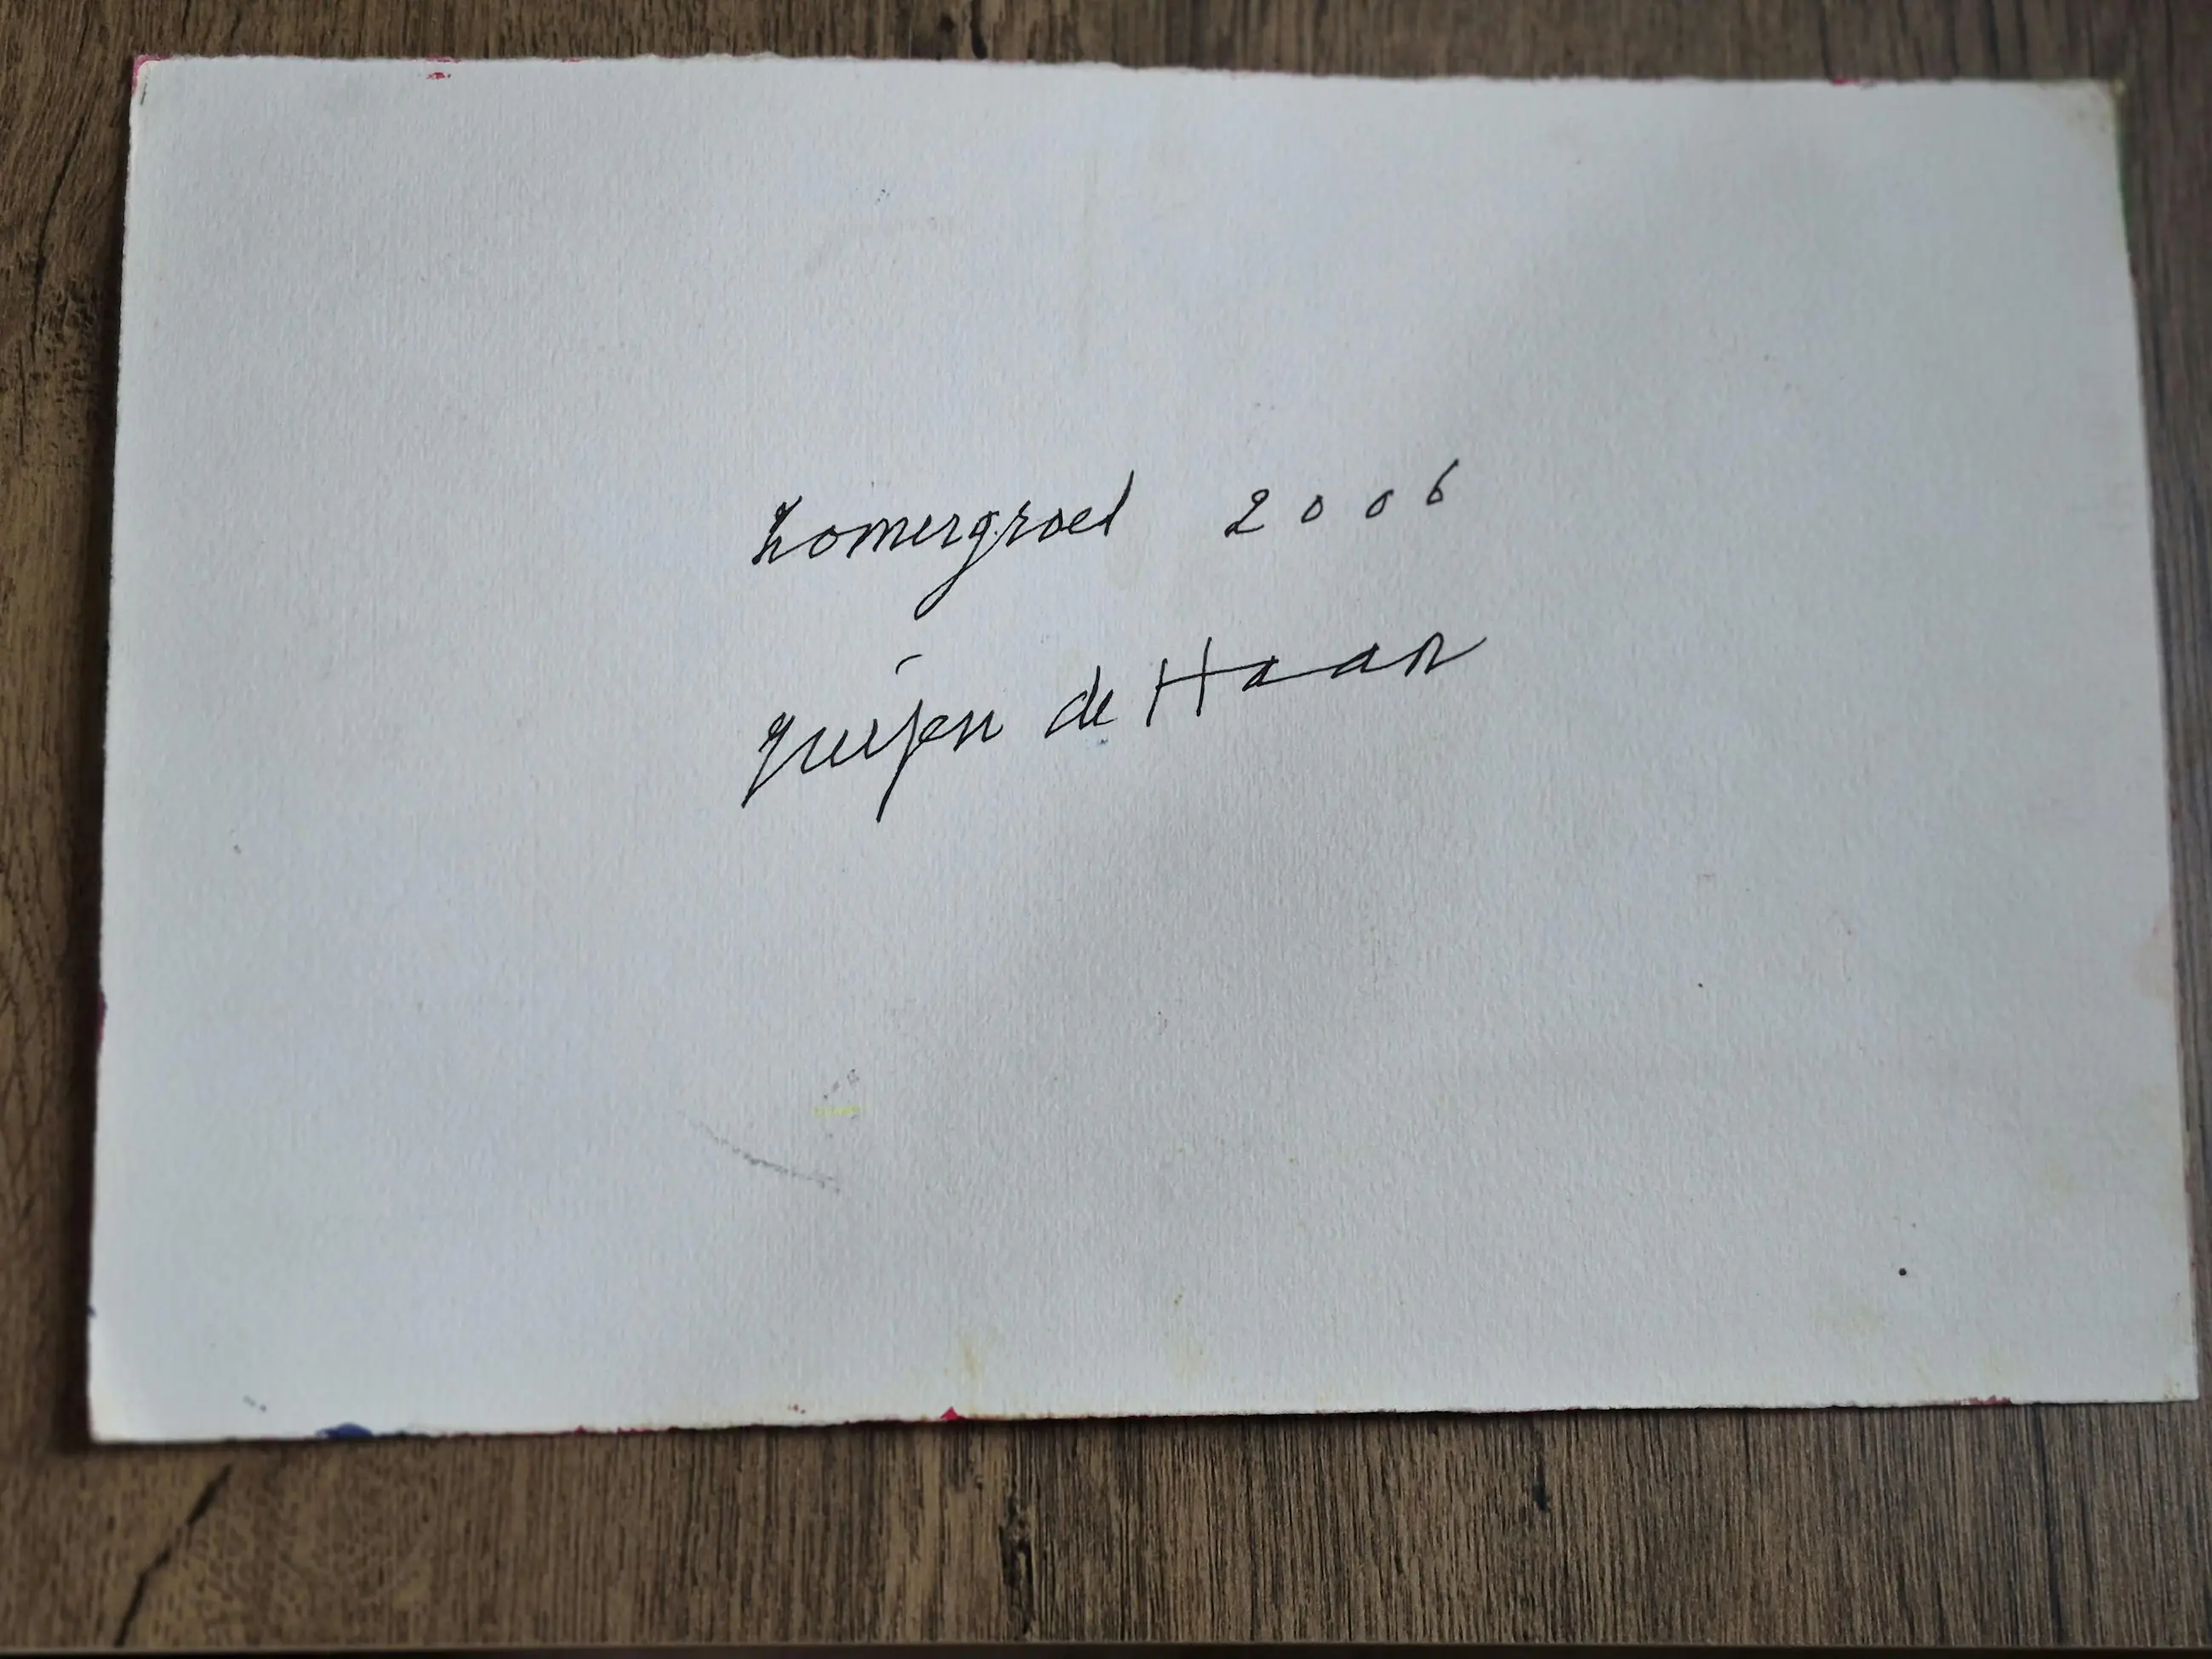 Zomergroet 2006
de Haan